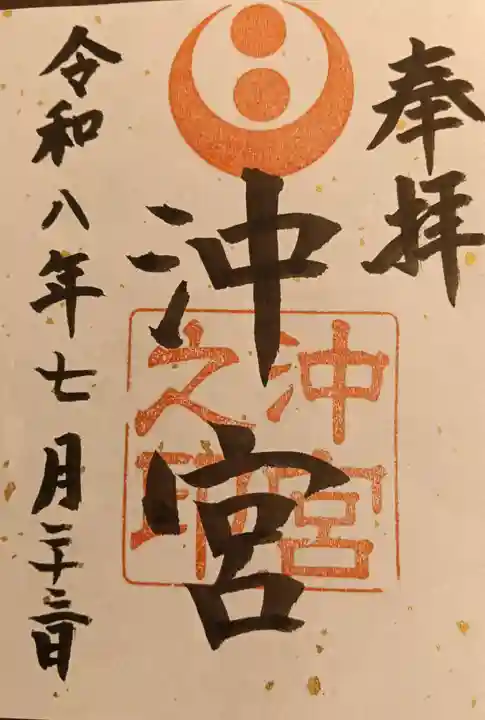 奉拝
沖宮
沖宮之印
令和八年七月二十三日